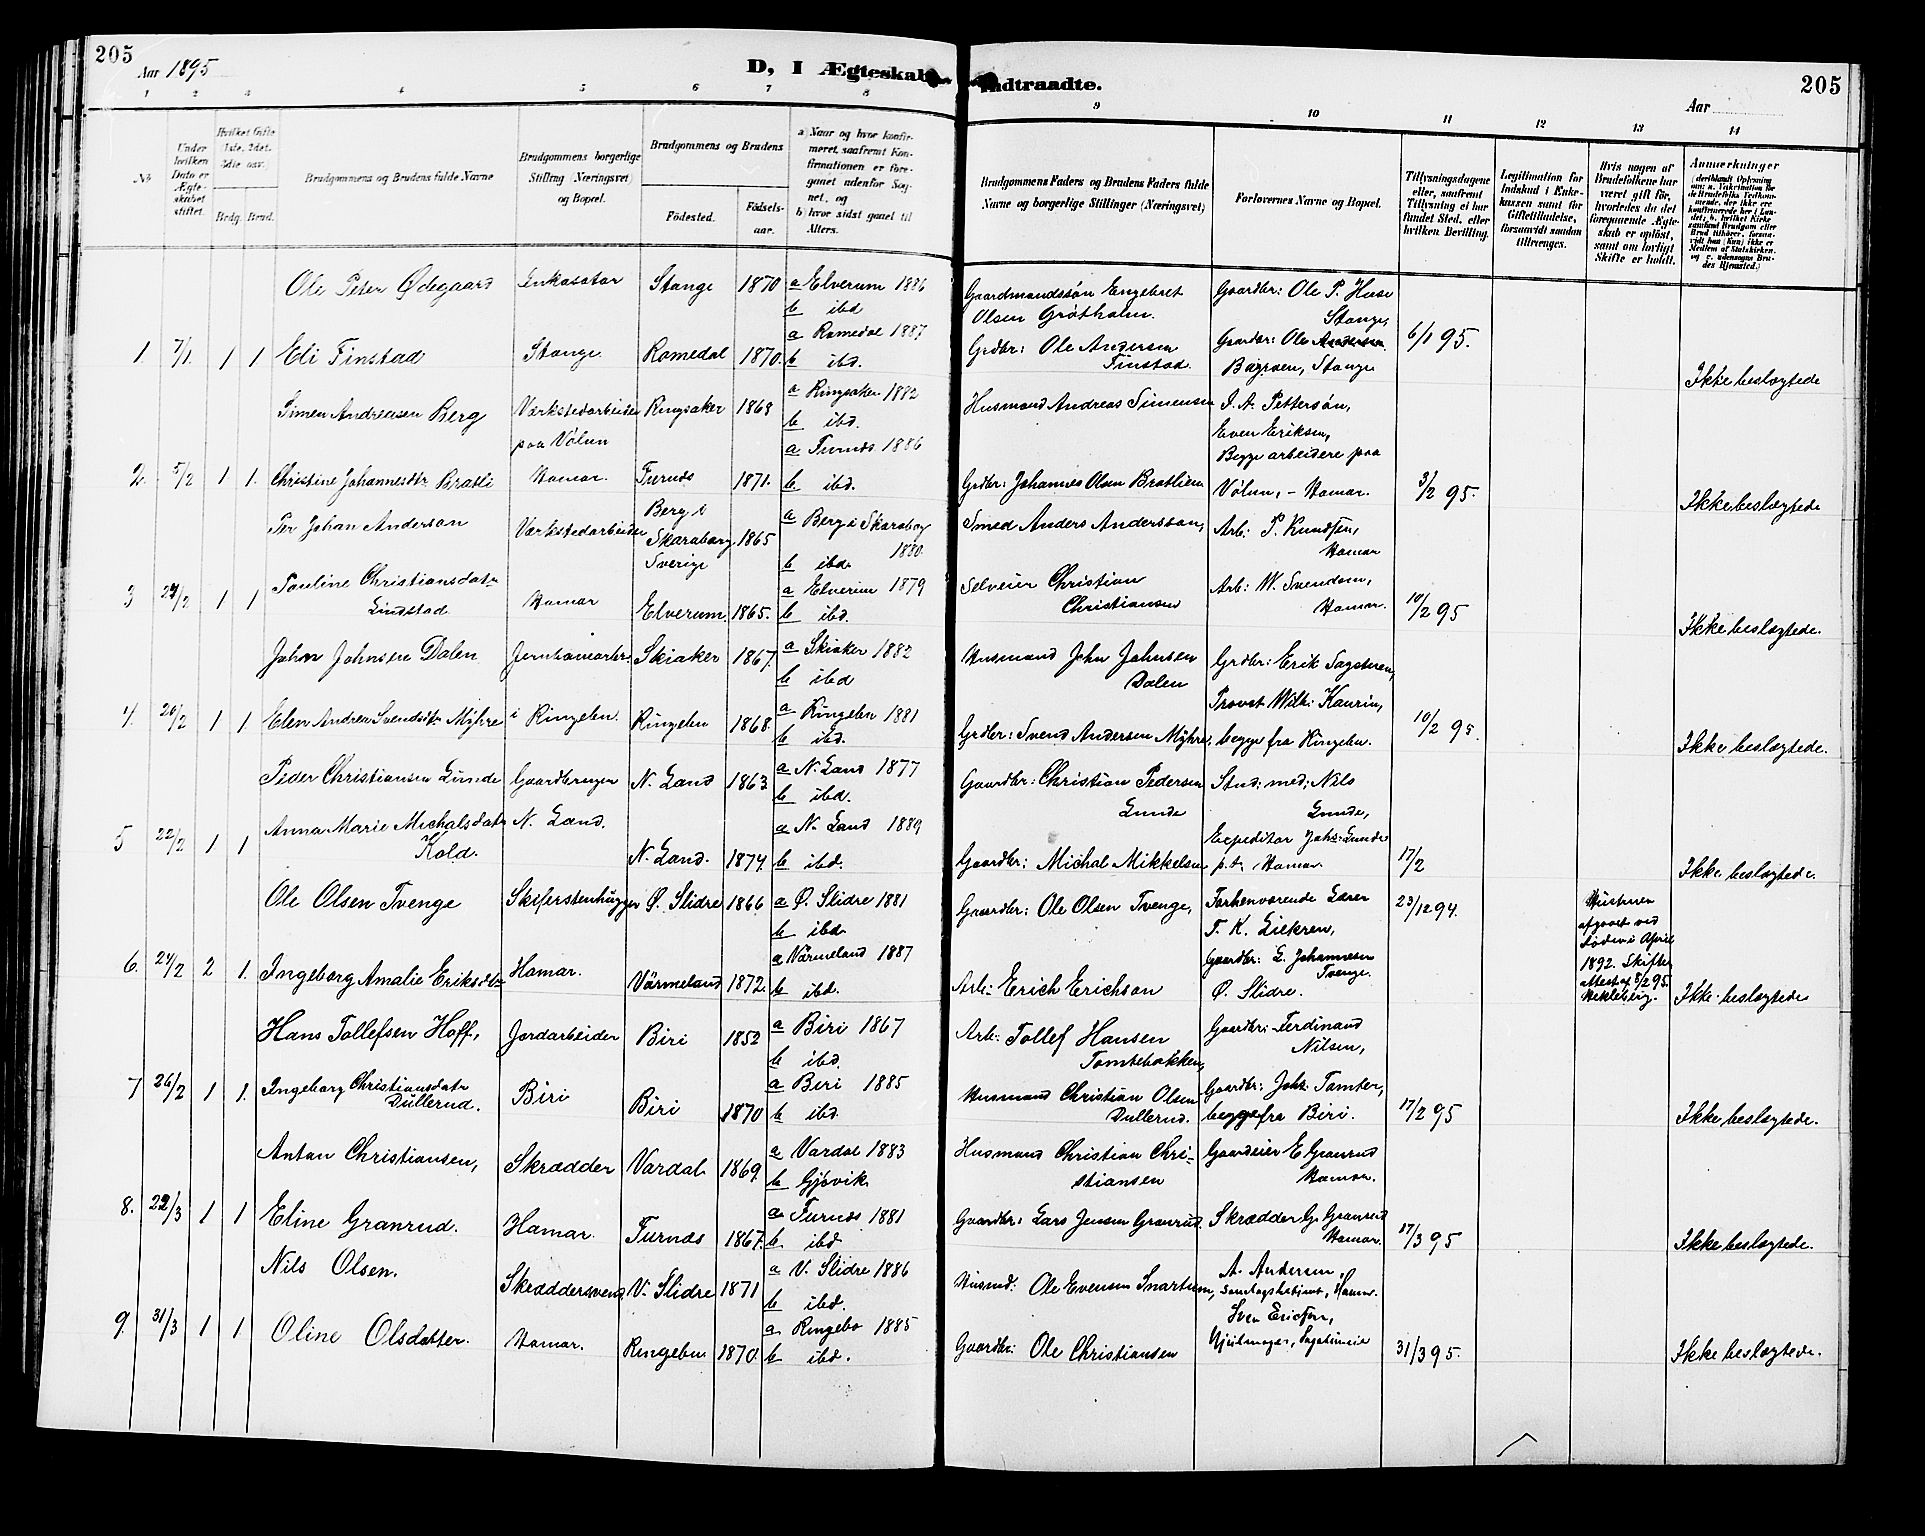 205
Aar 1895
D, I Ægteskab Indtraadte.
Aar
205
1 2 3 4 5 6 7 8 9 10 11 12 13 14
No
Under hvilken Dato er Ægteskabet stiftet.
Hvilket Gifte (1ste, 2det, 3die osv.)
Brdg. Brud.
Brudgommens og Brudens fulde Navne
Brudgommens borgerlige Stilling (Næringsvei) og Bopæl.
Brudgommens og Brudens
Födested.
Födselsaar.
a) Naar og hvor konfirmeret, saafremt Konfirmationen er foregaaet udenfor Sognet, og
b) hvor sidst gaaet til Alters.
Brudgommens Faders og Brudens Faders fulde Navne og borgerlige Stillinger (Næringsvei)
Forlovernes Navne og Bopæl.
Tillysningsdagene eller, saafremt Tillysning ei har fundet Sted, efter hvilken Bevilling.
Legitimation for Indskud i Enkekassen samt for Giftetilladelse, forsaavidt saadan tiltrænges.
Hvis nogen af Brudefolkene har været gift för, hvorledes da det foregaaende Ægteskab er oplöst, samt om lovligt Skifte er holdt.
Anmærkninger
Ole Peter Ødegaard Inkasator Stange 1870 a Elverum 1886 b ibd Gaardmandssön Engebret Olsen Grötholm. Gaardbr: Ole P. Huse Stange,
1. 7/1. 1 1 Eli Finstad Stange Romedal 1870. a Romedal 1887 b ibd. Grdbr: Ole Andersen Finstad. Gaardbr: Ole Andersen Bögroen, Stange 6/1 95. Ikke beslægtede
Simen Andreasen Berg Værkstedarbeider paa Völun Ringsaker 1868 a Ringsaker 1882 b ibd. Husmand Andreas Simensen I. A. Pettersön, Even Eriksen, Begge arbeidere paa
2. 5/2 1 1. Christine Johannesdtr Bratli Hamar. Furnæs 1871. a Furnæs 1886 b ibd. Grdbr: Johannes Olsen Bratlien Völun, - Hamar. 3/2 95. Ikke beslægtede
Per Johan Anderson Værkstedarbeider Berg i Skaraborg Sverige 1865 a Berg i Skaraborg 1880. b ibd. Smed Anders Andersson, Arb: P. Knudsen, Hamar
3 24/2 1 1 Pauline Christiansdatr Lindstad Hamar Elverum 1865. a Elverum 1879 b ibd. Selveier Christian Christiansen Arb: W. Svendsen, Hamar. 10/2 95 Ikke beslægtede.
John Johnsen Dalen Jernbanearbr. Skiaker 1867. a Skiaker 1882 b ibd Husmand John Johnsen Dalen Grdbr: Erik Sagstuen, Provst Wilh: Kaurin,
4. 20/2 1 1. Elen Andrea Svendsdtr Myhre i Ringebu. Ringebu 1868. a Ringebu 1881 b ibd. Grdbr: Svend Andersen Myhre, begge fra Ringebu. 10/2 95. Ikke beslægtede.
Peder Christiansen Lunde Gaardbruger N. Land 1863 a N. Land 1877 b ibd. Gaardbr: Christian Pedersen Lunde Stud: med: Nils Lunde,
5 22/2 1 1 Anna Marie Michalsdatr Kold. N. Land. N. Land. 1874. a N. Land 1889 b ibd. Gaardbr: Michal Mikkelsen Expeditor Johs: Lunde p.t. Hamar. 17/2 Ikke beslægtede.
Ole Olsen Tvenge Skiferstenhugger Ø. Slidre 1866 a Ø. Slidre 1881 b ibd. Gaardbr: Ole Olsen Tvenge, Forhenværende Lærer T. K. Liekren, 23/12 94. Hustruen afgaaet ved döden i April 1892. Skifteattest af 8/2 95.
6. 24/2 2 1. Ingeborg Amalie Eriksdtr Hamar. Värmeland 1872. a Värmeland 1887 b ibd. Arb: Erich Erichson Gaardbr: L. Johannesen Tvenge. Ø. Slidre. Ikke beslægtede
Hans Tollefsen Hoff, Jordarbeider Biri 1852 a Biri 1867 b ibd. Arb: Tollef Hansen Tomtebakken, Gaardbr: Ferdinand Nilsen,
7 26/2 1 1. Ingeborg Christiansdatr Dullerud. Biri Biri 1870 a Biri 1885 b ibd. Husmand Christian Olsen Dullerud. Gaardbr: Johs: Tomter, begge fra Biri. 17/2 95 Ikke beslægtede.
Anton Christiansen, Skrædder Vardal 1869. a Vardal 1883 b Gjövik Husmand Christian Christiansen Gaardeier E Granrud Hamar.
8. 22/3 1 1 Eline Granrud. Hamar. Furnæs 1867. a Furnæs 1881 b ibd Gaardbr: Lars Jensen Granrud. Skrædder G. Granrud Hamar. 17/3 95 Ikke beslægtede.
Nils Olsen. Skredddersvend. V. Slidre 1871 a V. Slidre 1886 b ibd. Husmd: Ole Evensen Snartum, A. Andersen,
9. 31/3 1 1 Oline Olsdatter. Hamar. Ringebu 1870. a Ringebo 1885 b ibd. Gaardbr: Ole Christiansen Sven Ericson, Hjulmager, 31/3 95. Ikke beslægtede.